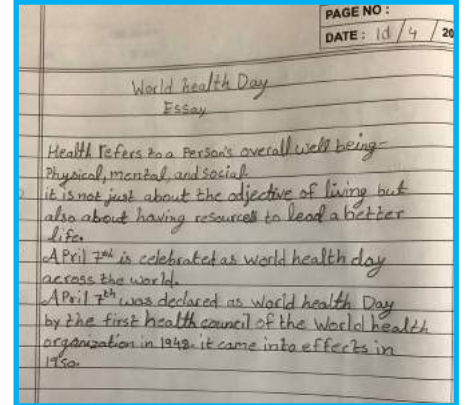 PAGE NO :
DATE : 1d / 4 / 20
World health Day
Essay
Health refers to a Person's overall well being-
Physical, mental, and social.
it is not just about the odjective of living but
also about having resources to lead a better
life.
APril 7th is celebrated as world health day
across the world.
APril 7th was declared as world health Day
by the first health council of the World health
organization in 1948. it came into effects in
1950.